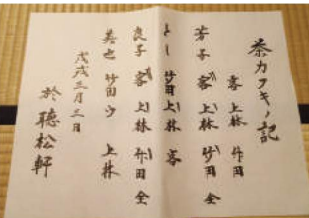 茶カフキノ記
客 上林 竹田
芳子 客 上林 竹田 全
よし 竹田 上林 客
良子 客 上林 竹田 全
美也 竹田 ウ 上林
戊戌三月三日
於 聴松軒